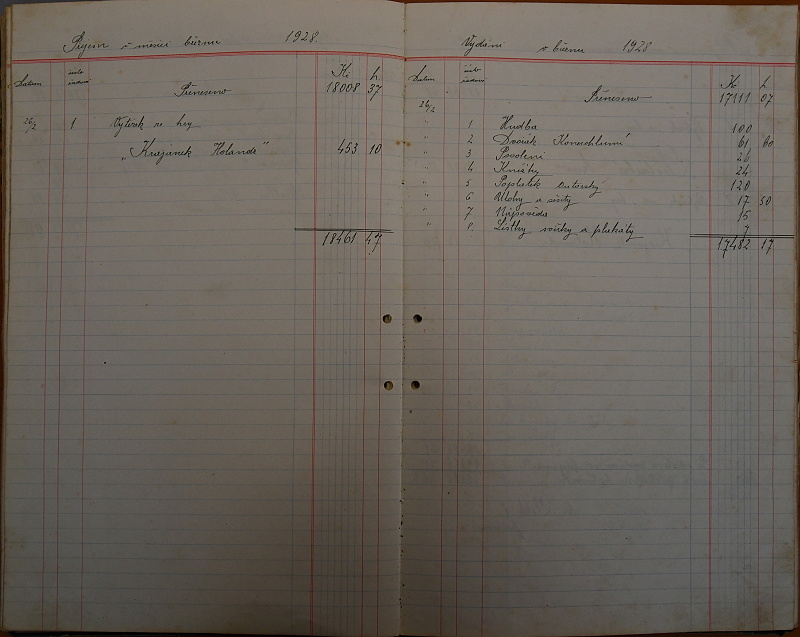 Příjem v měsíci březnu 1928.
Datum číslo Kč h.
Přeneseno 18008 37
26/2 1 Výtěžek ze hry
„Krajánek Holanda" 453 10
18461 47
Vydání v březnu 1928
Datum číslo Kč h
Přeneseno 17111 07
26/2
" 1 Hudba 100
" 2 Dvořák Konecchlumí 61 60
" 3 Povolení 26
" 4 Knížky 24
" 5 Poplatek autorský 120
" 6 Úlohy a sešity 17 50
" 7 Nápověda 15
" 8. Lístky a plakáty 7
17482 17